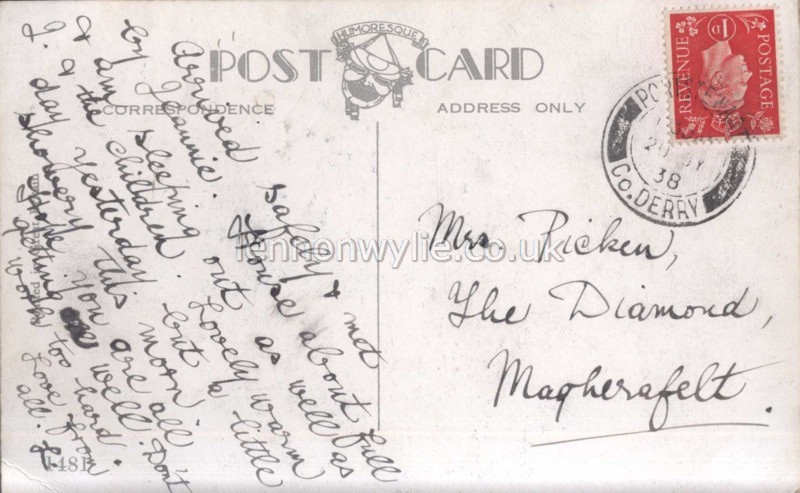 HUMORESQUE
POST CARD
CORRESPONDENCE
ADDRESS ONLY
POSTAGE
REVENUE
1D
Co. DERRY
38
Arrived safely & met
by Jeannie. House about full
& am sleeping out as well as
J. & the children. Lovely warm
day yesterday but a little
showery this morn.
Hope you are all
getting well. Don't
work too hard.
Love from
all.
Mrs. Picken,
The Diamond,
Magherafelt.
lennonwylie.co.uk